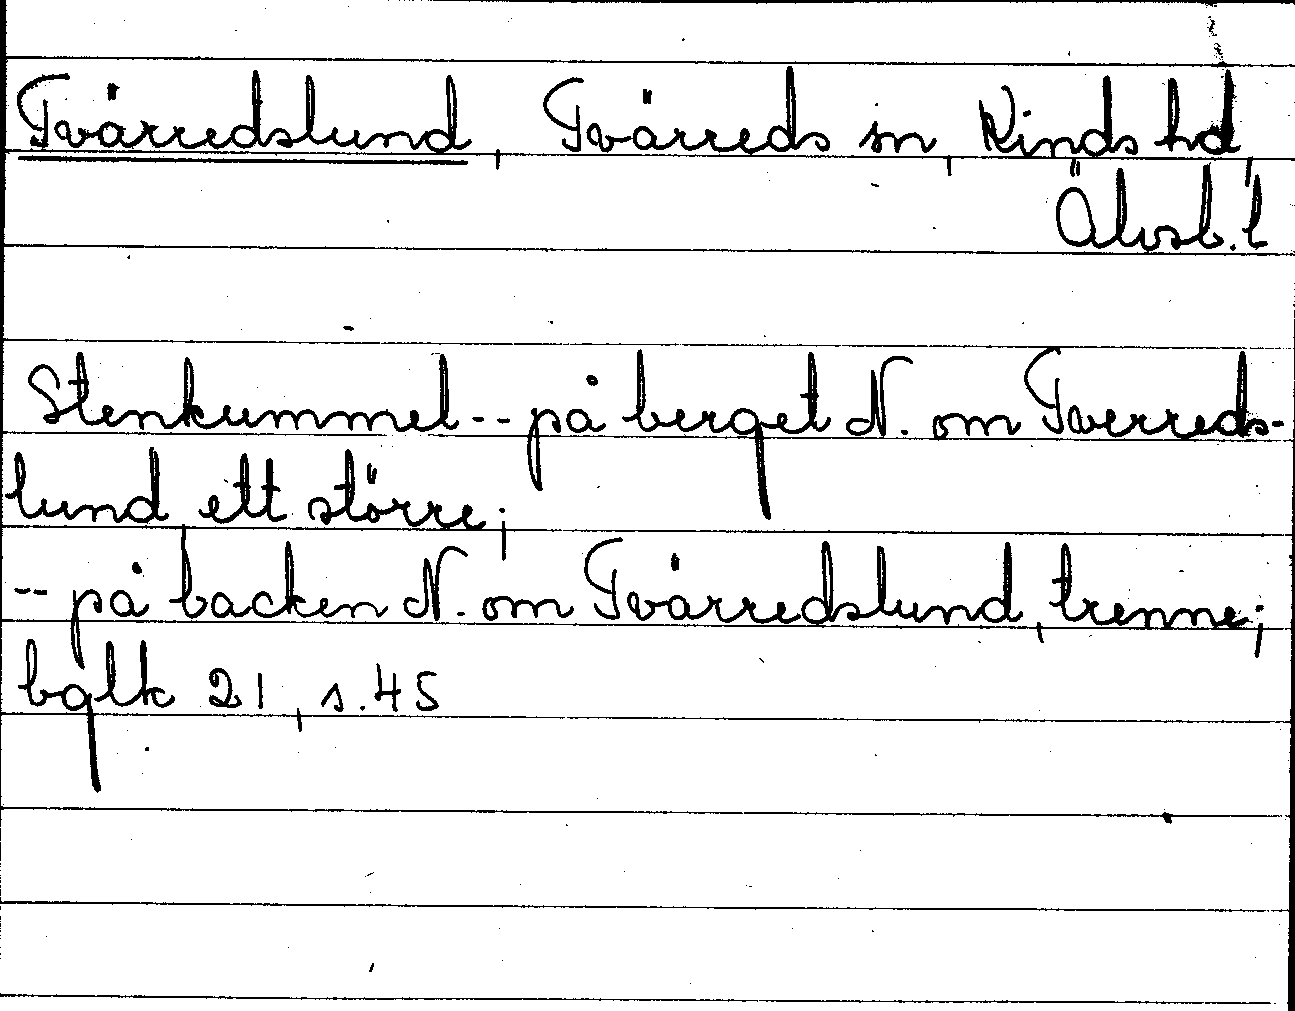 Tvärredslund, Tvärreds sn, Kinds hd,
Älvsb. l
Stenkummel -- på berget N. om Tverreds-
lund ett större;
-- på backen N. om Tvärredslund, trenne;
bglk 21, s. 45